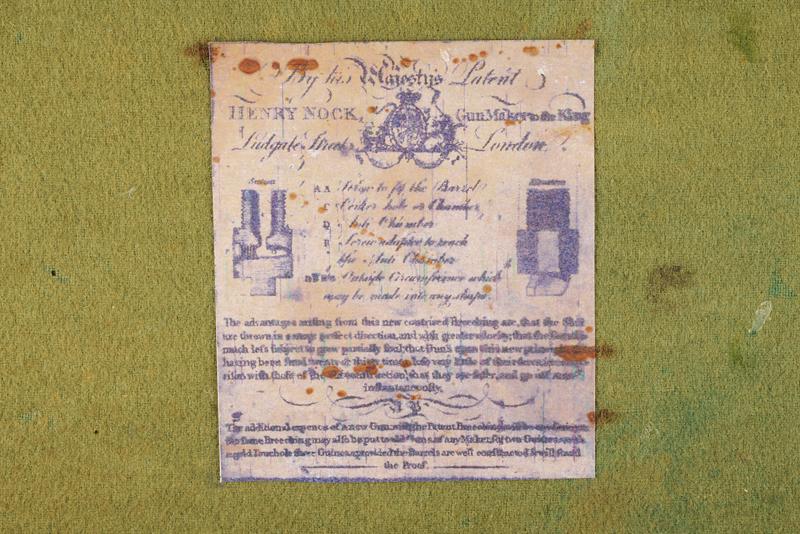 By his Majestys Patent
HENRY NOCK, Gun Maker to the King
Ludgate Street London.
Section
A A Screw to fit the Barrel
C Center hole or Chamber
D Anti Chamber
Screw adapted to reach
the Anti Chamber
Outside Circumference which
may be made into any shape.
The advantages arising from this new contrived Breeching are, that the Shot
are thrown in a more perfect direction, and with greater velocity, that the
much lefs subject to grow partially foul, that Guns upon this new
having been fired twenty or thirty times lose very little of their force,
with those of the construction, that they are safer, and go off
instantaneously.
N.B.
The additional expence of a new Gun with the Patent Breeching
the same Breeching may also be put to old Guns of any Maker, for two Guineas
a gold Touchole three Guineas, provided the Barrels are well constructed & will stand
the Proof.